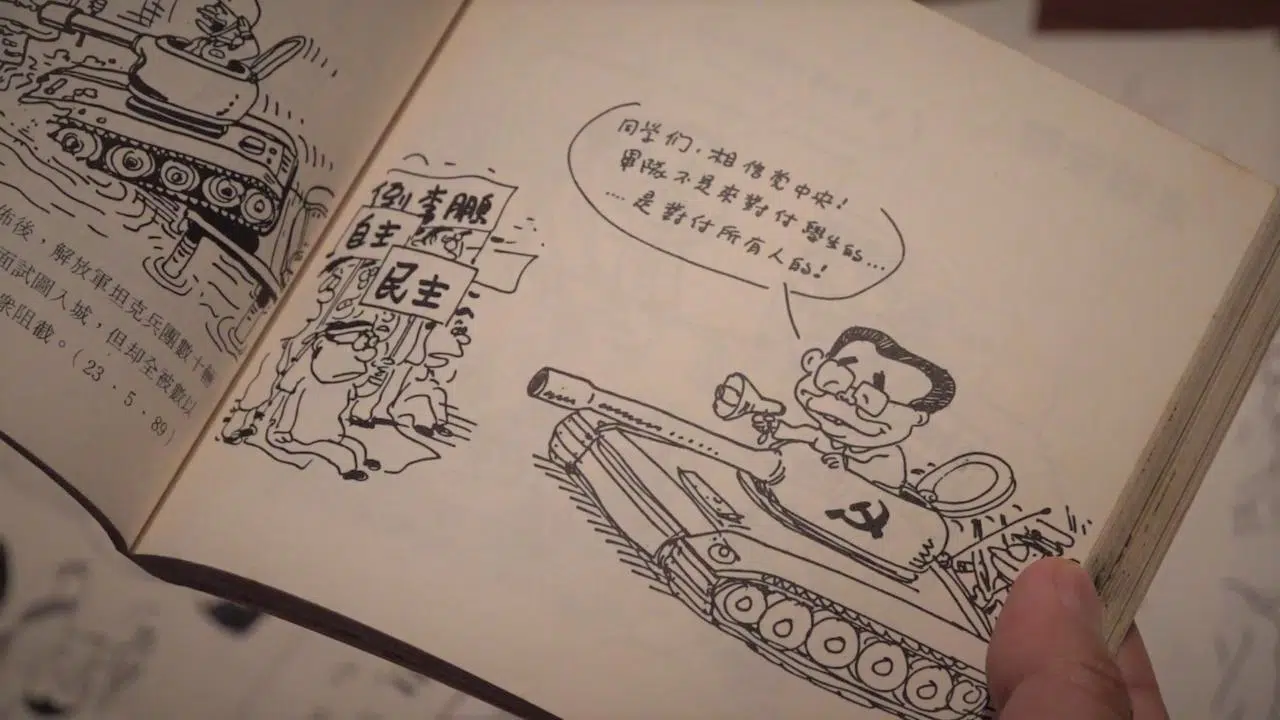 佈後，解放軍坦克兵團數十輛
面試圖入城，但却全被數以
衆阻截。（23、5、89）
倒李鵬
自主
民主
同学们，相信党中央！
軍隊不是來對付學生的...
....是對付所有人的！